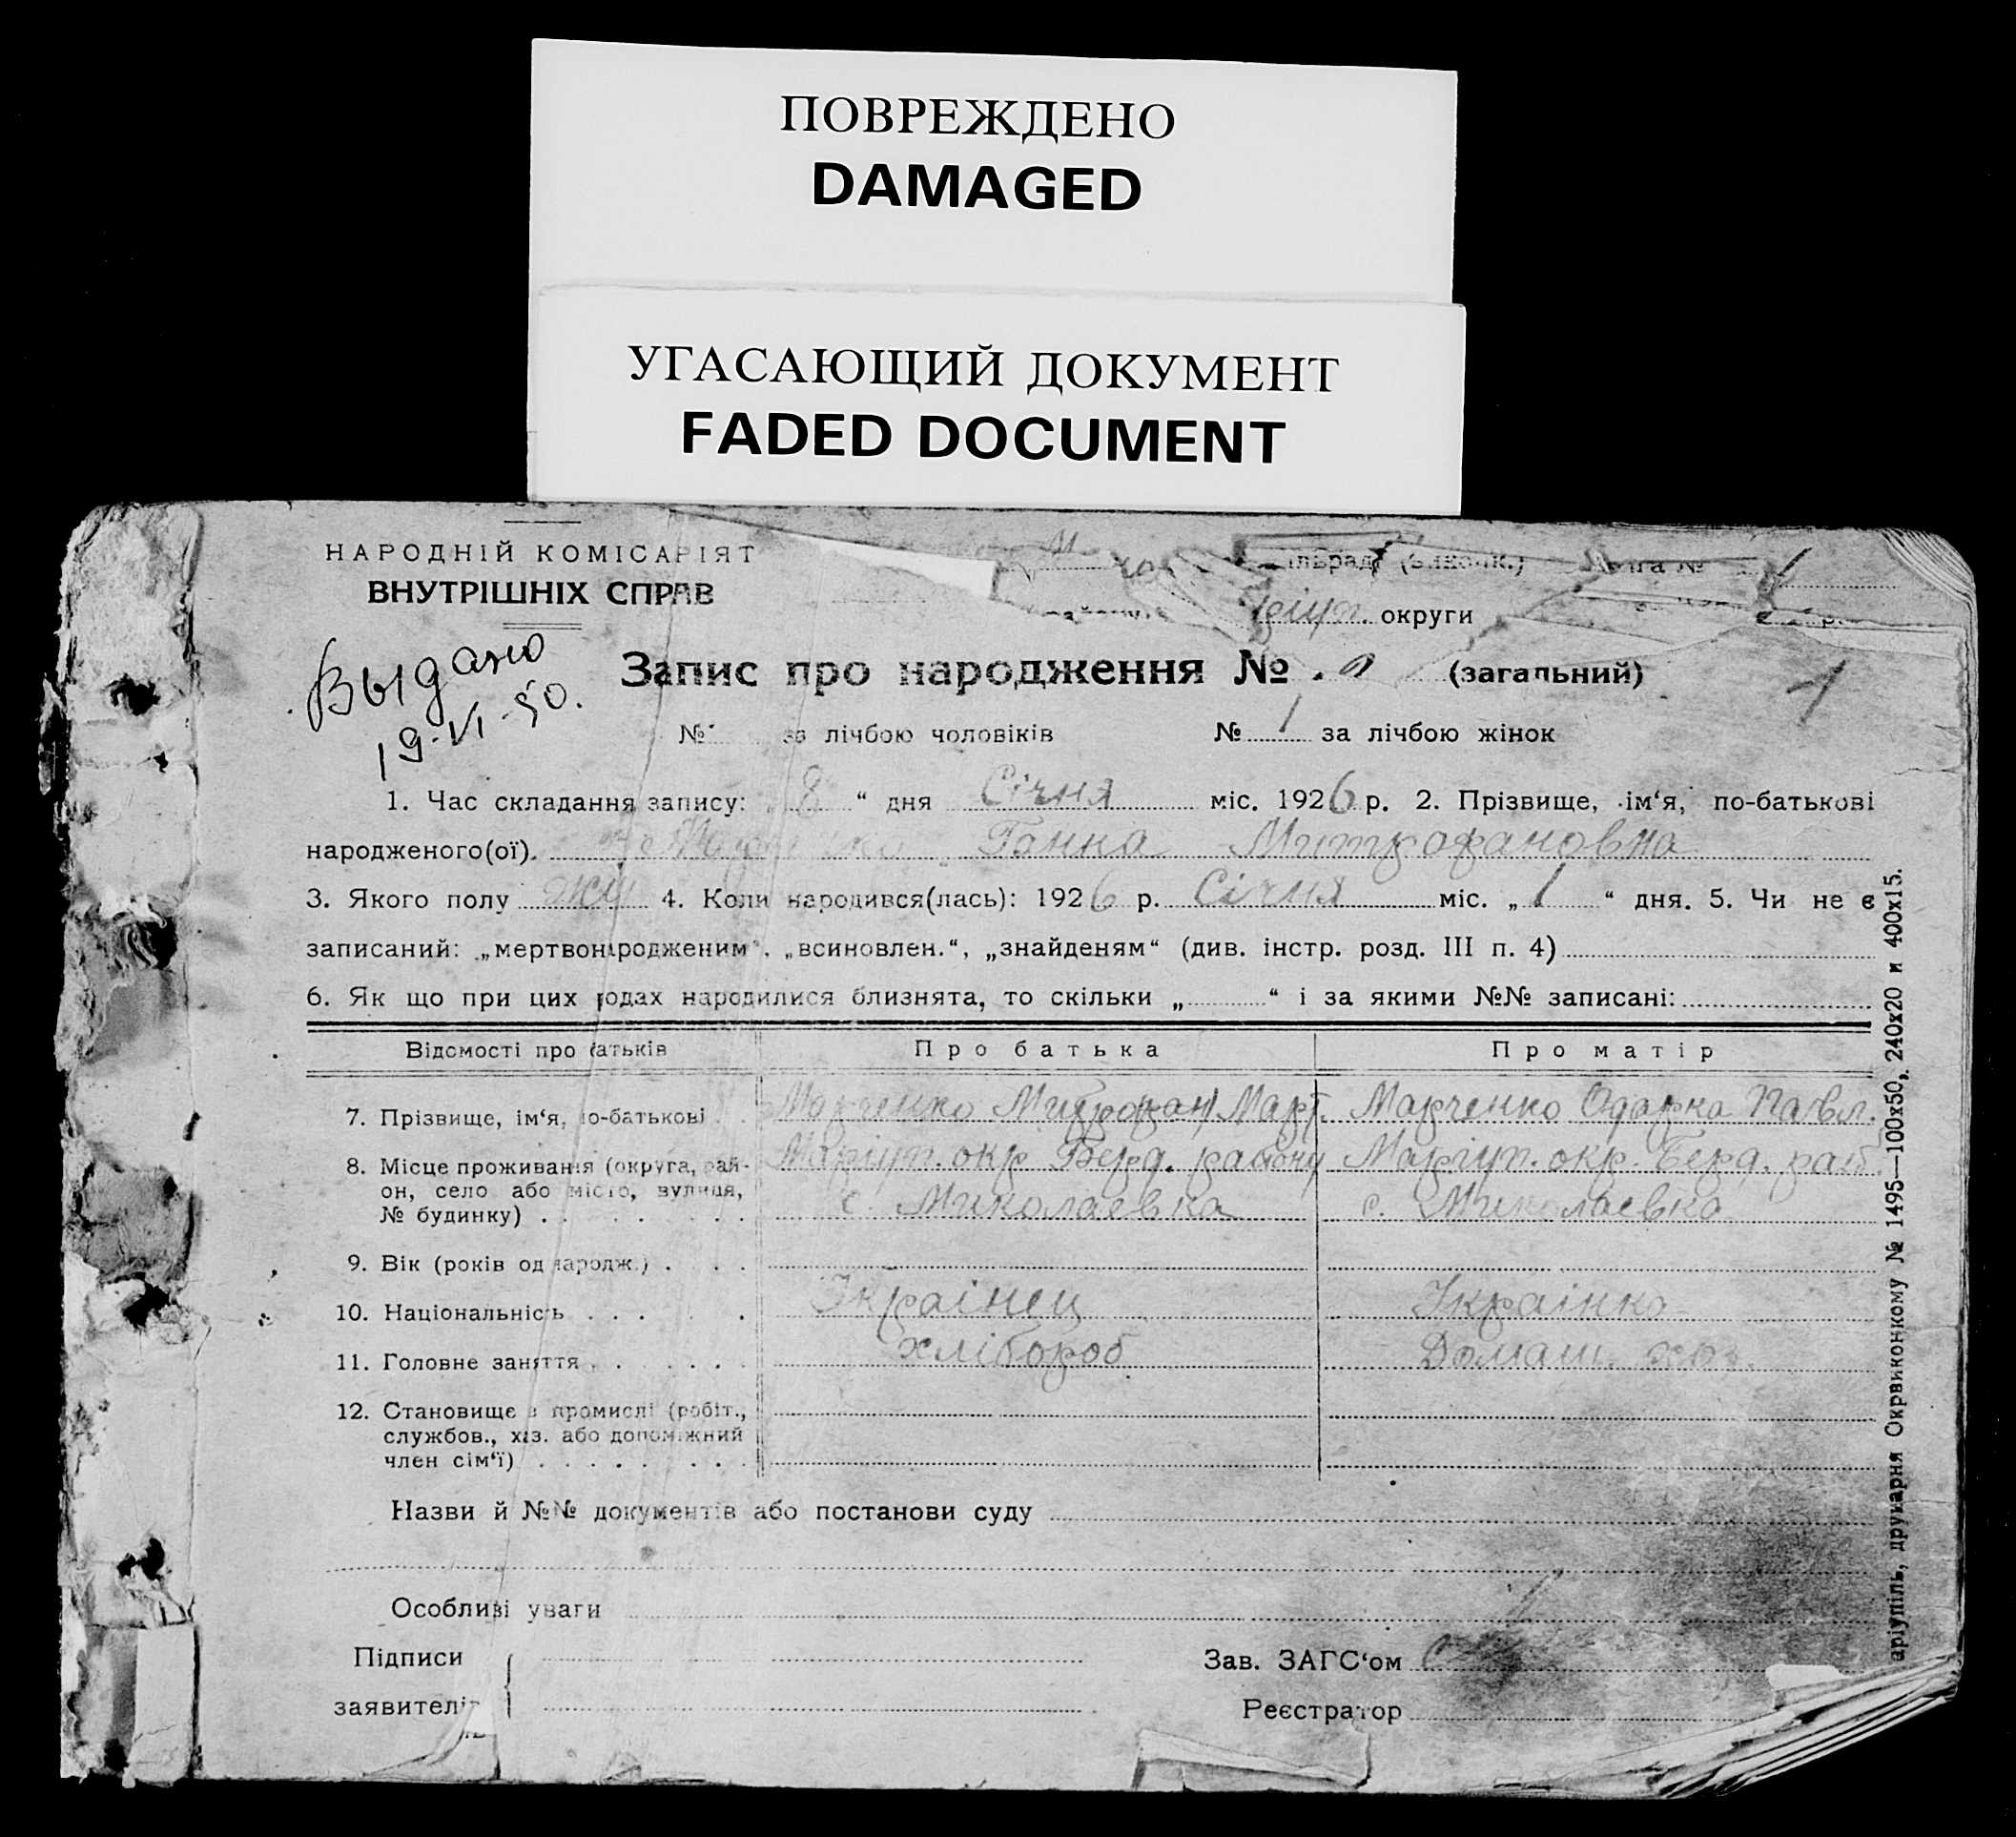 ПОВРЕЖДЕНО
DAMAGED
УГАСАЮЩИЙ ДОКУМЕНТ
FADED DOCUMENT
НАРОДНІЙ КОМІСАРІЯТ
ВНУТРІШНІХ СПРАВ
округи
Выдано
19.VI-50.
Запис про народження № (загальний)
1
№ за лічбою чоловіків № 1 за лічбою жінок
1. Час складання запису: „8“ дня Січня міс. 1926 р. 2. Прізвище, ім‘я, по-батькові
народженого(ої). Ганна Митрофановна
3. Якого полу жін 4. Коли народився(лась): 1926 р. Січня міс. „1“ дня. 5. Чи не є
записаний: „мертвонародженим“, „всиновлен.“, „знайденям“ (див. інстр. розд. III п. 4)
6. Як що при цих родах народилися близнята, то скільки „ “ і за якими №№ записані:
Відомості про батьків Про батька Про матір
7. Прізвище, ім‘я, по-батькові Марченко Митрофан Март. Марченко Одарка Павл.
8. Місце проживання (округа, рай- Маріуп. окр. Берд. району Маріуп. окр. Берд. рай.
он, село або місто, вулиця, с. Миколаевка с. Миколаевка
№ будинку)
9. Вік (років од народж.)
10. Національність Українец Українка
11. Головне заняття хлібороб Домаш. хоз.
12. Становище в промислі (робіт.,
службов., хаз. або допоміжний
член сім‘ї)
Назви й №№ документів або постанови суду
Особливі уваги
Підписи Зав. ЗАГС‘ом
заявителів Реєстратор
аріупіль, друкарня Окрвиконкому № 1495—100х50, 240х20 и 400х15.